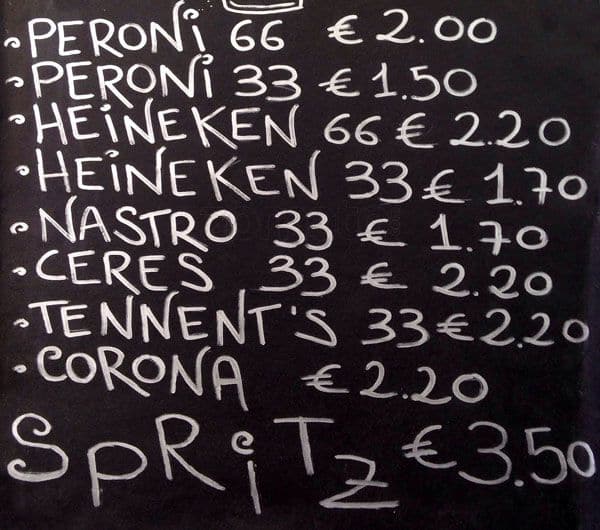 • PERONi 66 € 2.00
• PERONi 33 € 1.50
• HEiNEKEN 66 € 2.20
• HEiNEKEN 33 € 1.70
• NASTRO 33 € 1.70
• CERES 33 € 2.20
• TENNENT'S 33 € 2.20
• CORONA € 2.20
SpRiTz € 3.50